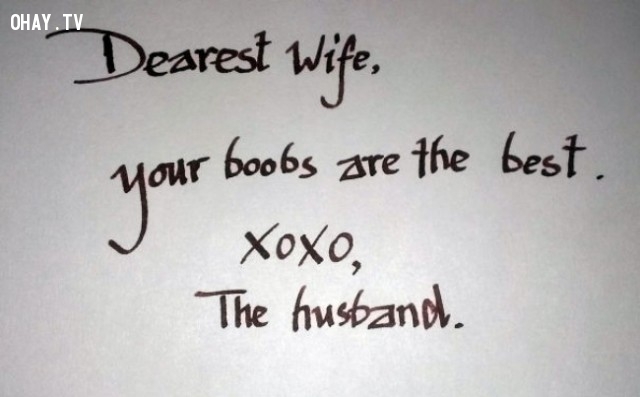 OHAY.TV
Dearest Wife,
your boobs are the best.
XOXO,
The husband.